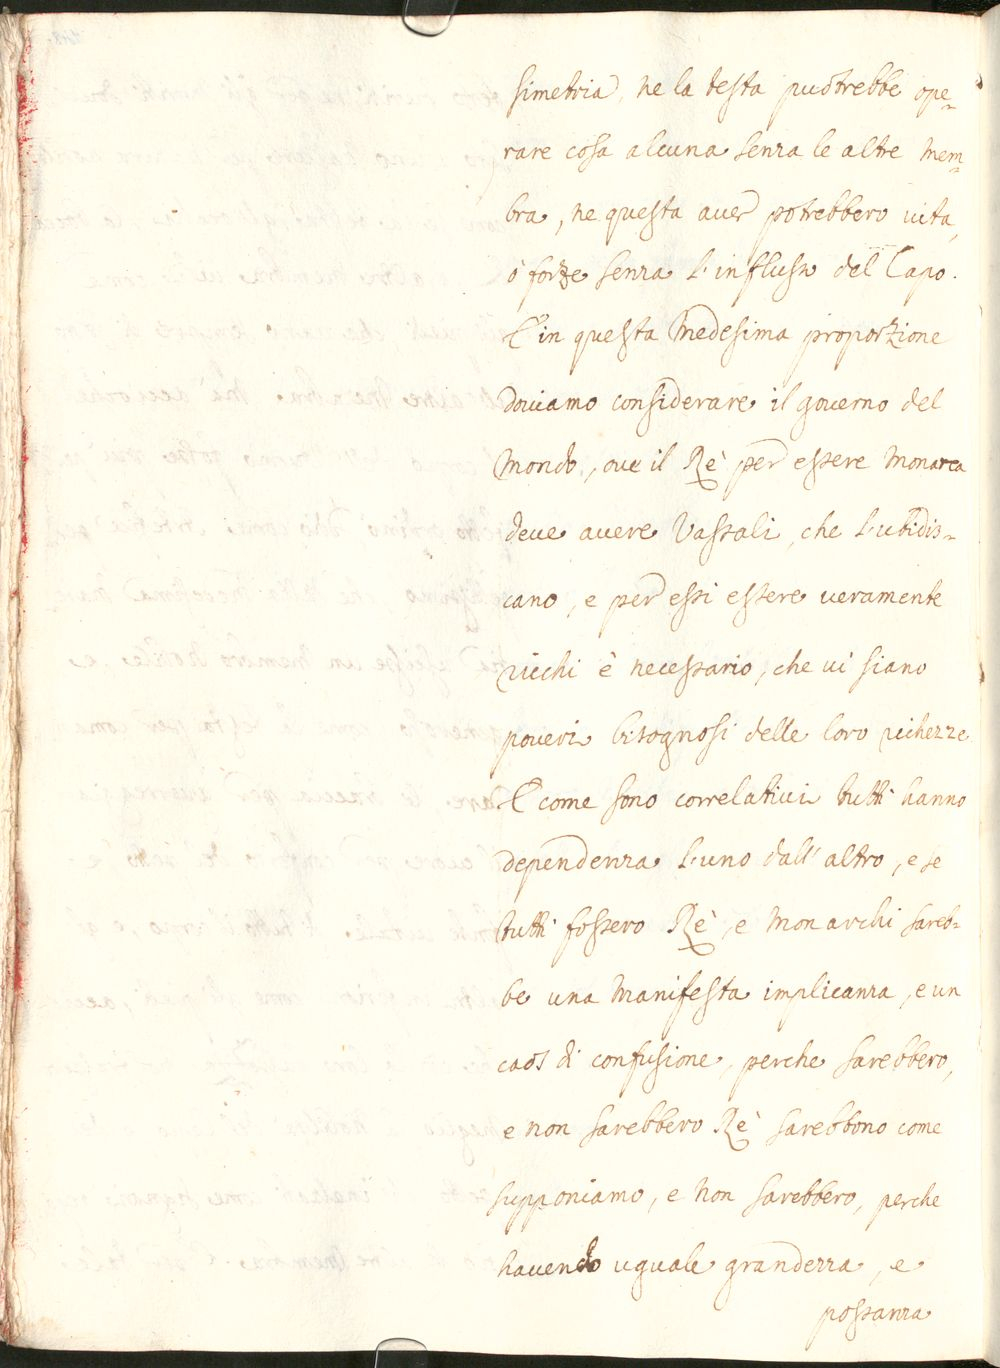 simetria, ne la testa puotrebbe ope-
rare cosa alcuna senza le altre mem-
bra, ne questa aver potrebbero vita,
ò forze senza l'influsso del Capo.
E in questa medesima proporzione
doviamo considerare il governo del
Mondo, ove il Rè per essere Monarca
deve avere Vassali, che l'ubidis-
cano, e per essi essere veramente
ricchi è necessario, che vi siano
poveri bisognosi delle loro richezze
E come sono correlativi tutti hanno
dependenza l'uno dall'altro, e se
tutti fossero Rè, e Monarchi sareb-
be una manifesta implicanza, e un
caos di confusione, perche sarebbero,
e non sarebbero Rè sarebbono come
supponiamo, e non sarebbero, perche
havendo uguale grandezza, e
possanza